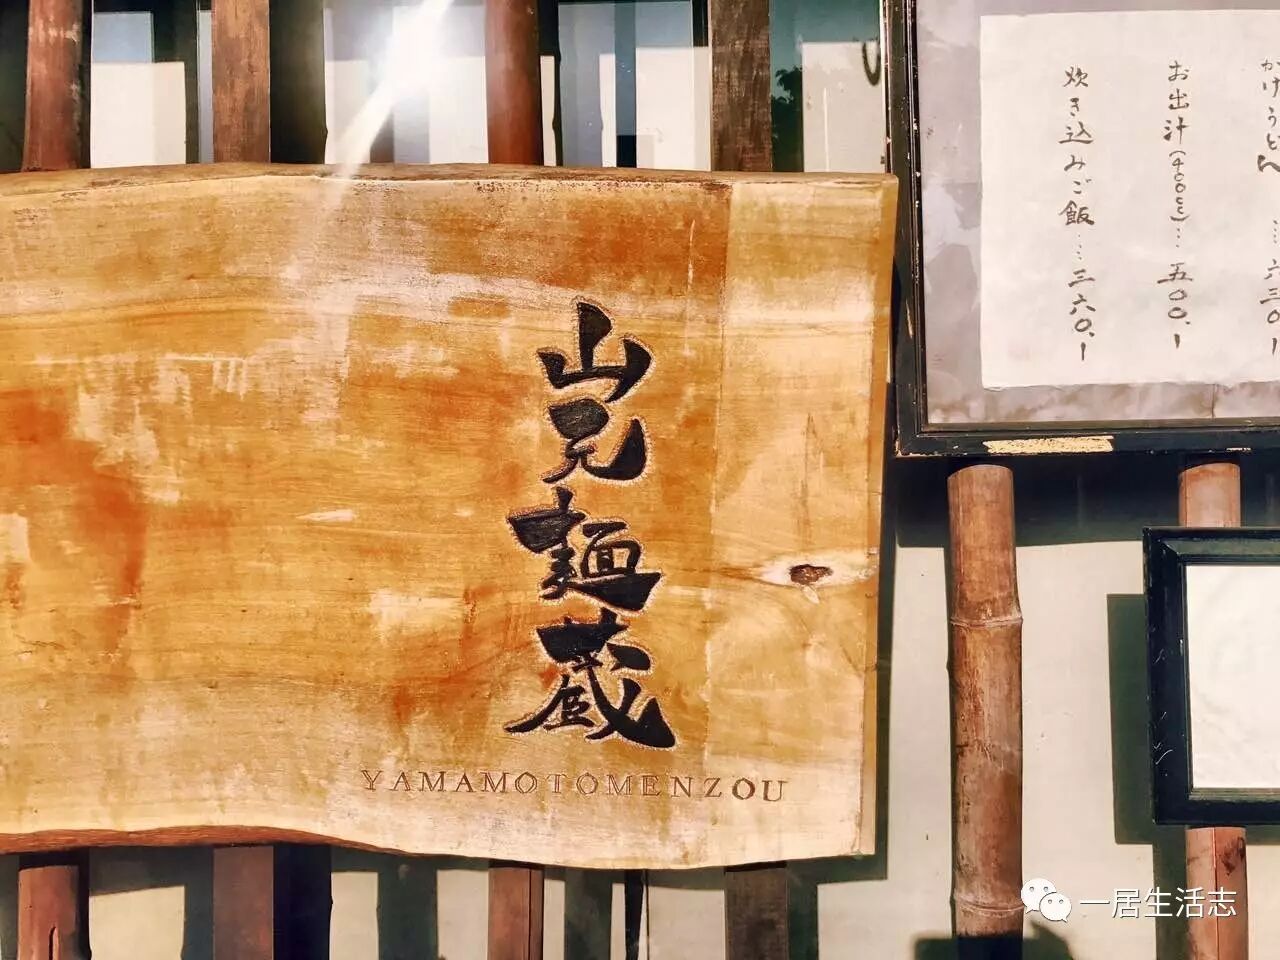 山元麺蔵
YAMAMOTOMENZOU
かけうどん…六三〇、-
お出汁(400cc)…五〇〇、-
炊き込みご飯…三六〇、-
一居生活志